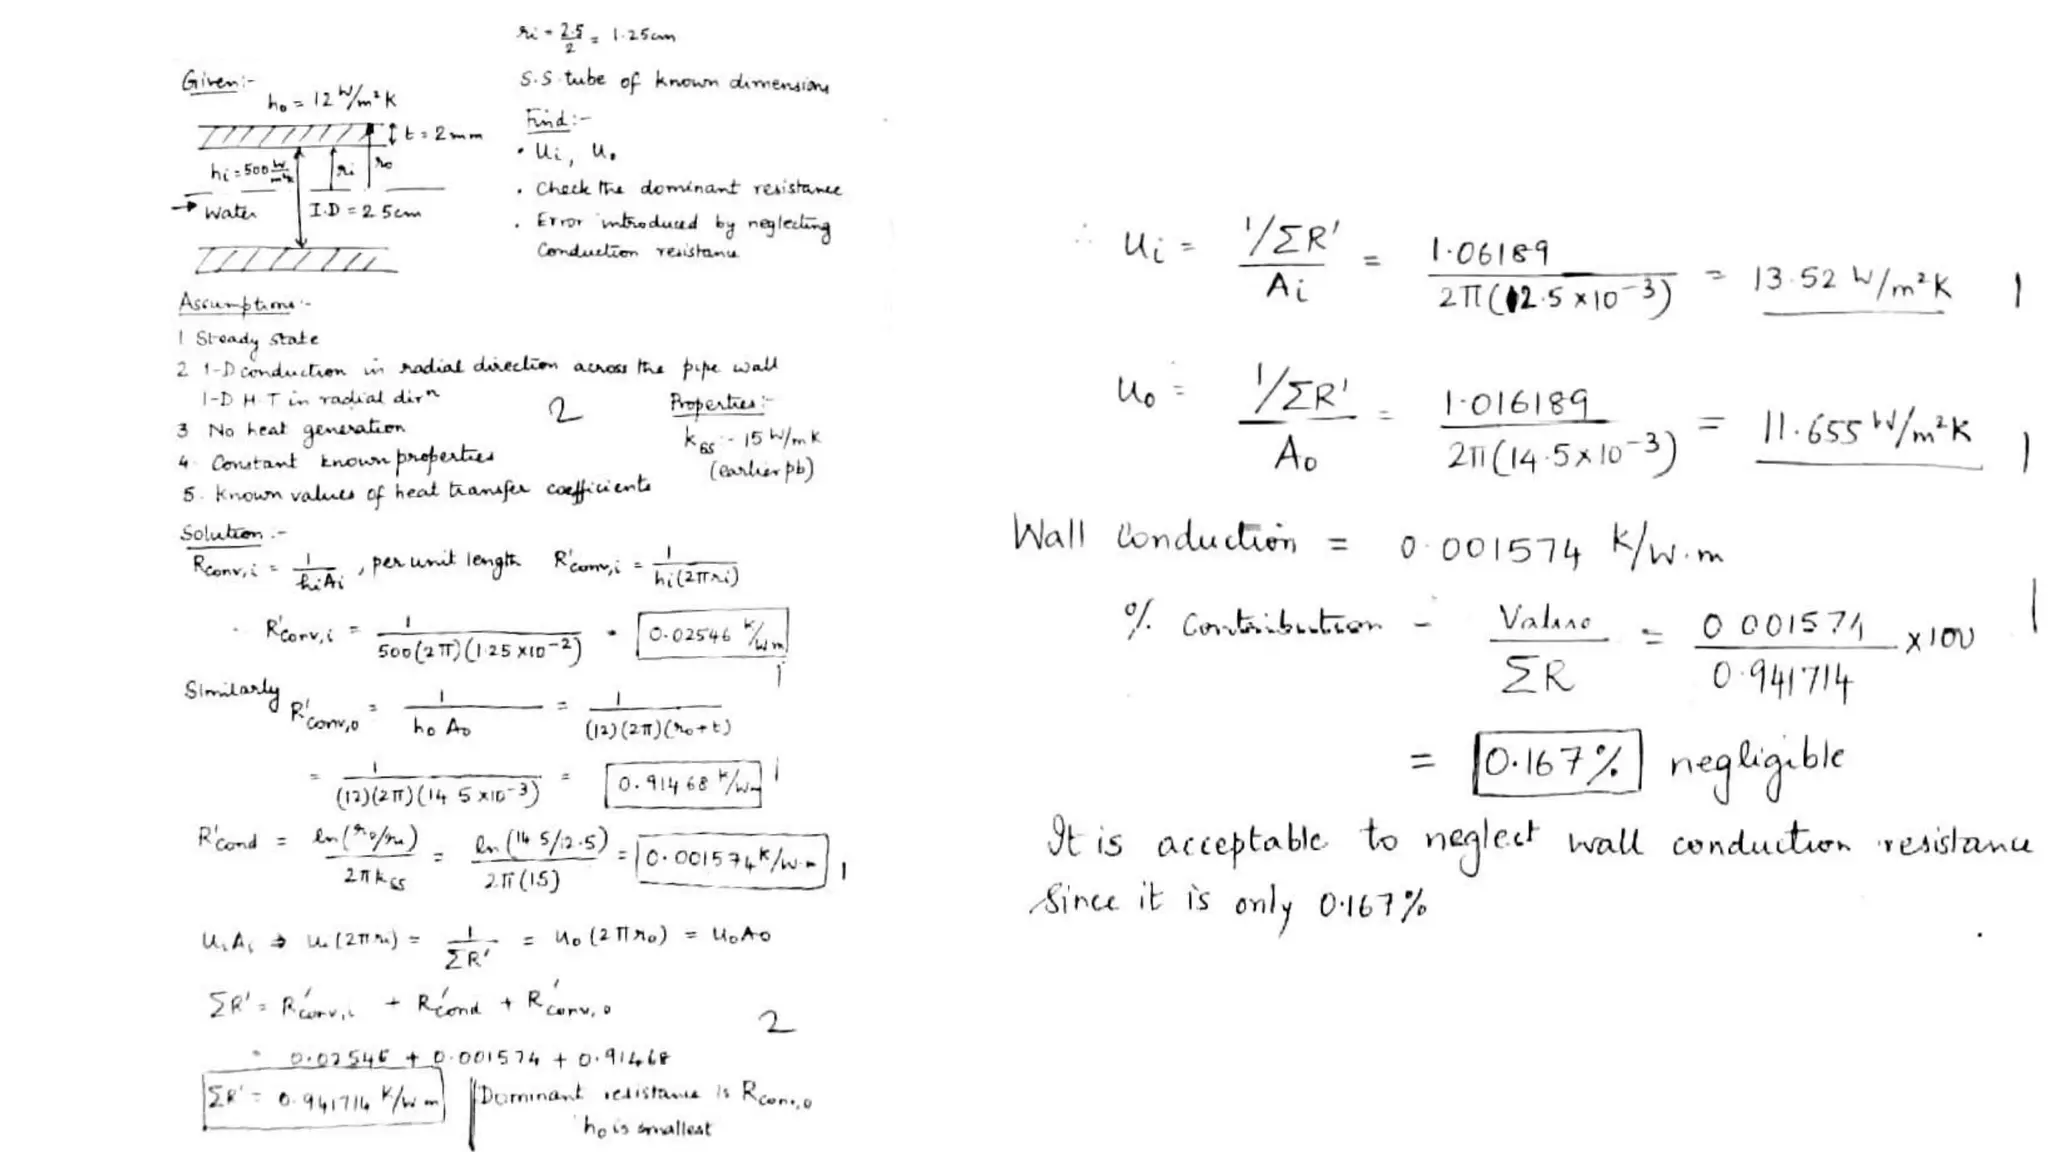 ri = 2.5/2 = 1.25cm
Given:-
S.S. tube of known dimensions
h₀ = 12 W/m²K
t = 2mm
hi = 500 W/m²K
ri
r₀
Water
I.D = 2.5cm
Find:-
• Ui, U₀
• Check the dominant resistance
• Error introduced by neglecting
Conduction resistance
Assumptions:-
1 Steady state
2 1-D conduction in radial direction across the pipe wall
1-D H.T in radial dirⁿ
3 No heat generation
4. Constant known properties
5. Known values of heat transfer coefficients
2
Properties:-
kss :- 15 W/mK
(earlier pb)
Solution:-
Rconv,i = 1/hiAi , per unit length R'conv,i = 1/hi(2πri)
R'conv,i = 1/500(2π)(1.25×10⁻²) = 0.02546 K/Wm
1
Similarly R'conv,o = 1/h₀A₀ = 1/(12)(2π)(r₀+t)
= 1/(12)(2π)(14.5×10⁻³) = 0.91468 K/Wm 1
R'cond = ln(r₀/ri)/2πkss = ln(14.5/12.5)/2π(15) = 0.001574 K/W.m 1
UiAi ⇒ Ui(2πri) = 1/ΣR' = U₀(2πr₀) = U₀A₀
ΣR' = R'conv,i + R'cond + R'conv,o
2
= 0.02546 + 0.001574 + 0.91468
ΣR' = 0.941714 K/Wm
Dominant resistance is Rconv,o
h₀ is smallest
∴ Ui = 1/ΣR' / Ai = 1.06189/2π(12.5×10⁻³) = 13.52 W/m²K 1
U₀ = 1/ΣR' / A₀ = 1.016189/2π(14.5×10⁻³) = 11.655 W/m²K 1
Wall Conduction = 0.001574 K/W.m
% Contribution = Value/ΣR = 0.001574/0.941714 ×100 1
= 0.167% negligible
It is acceptable to neglect wall conduction resistance
Since it is only 0.167%